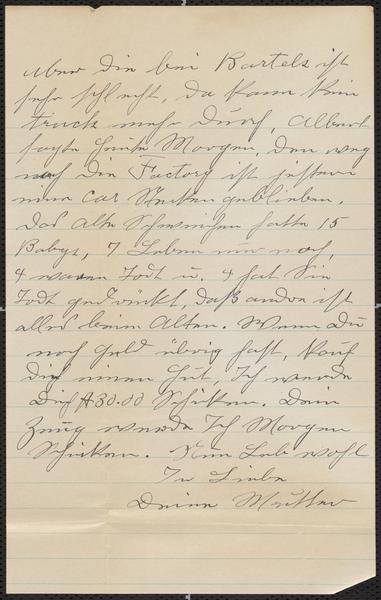 Aber die bei Bartels ist
sehr schlecht, da kann kein
truck mehr durch, Albert
sagte heute Morgen, den weg
nach die Factory ist gestern
eine car stecken geblieben.
Das alte Schweinchen hatte 15
Babys, 7 Leben nur noch,
4 waren Todt u. 4 hat Sie
Todt gedrückt, daß andre ist
alles beim Alten. Wenn Du
noch Geld übrig hast, Kauf
Dir einen Hut, Ich werde
Dich $30.00 Schicken. Dein
Zeug werde Ich Morgen
Schicken. Nun Leb wohl
In Liebe
Deine Mutter